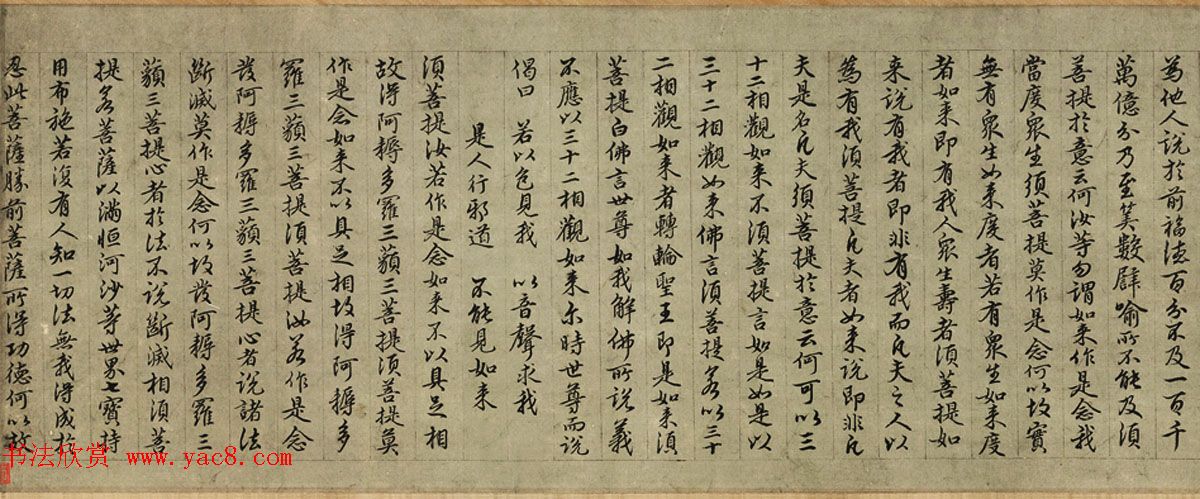 為他人說於前福德百分不及一百千
萬億分乃至筭數譬喻所不能及須
菩提於意云何汝等勿謂如來作是念我
當度衆生須菩提莫作是念何以故實
無有衆生如來度者若有衆生如來度
者如來即有我人衆生壽者須菩提如
来說有我者即非有我而凡夫之人以
為有我須菩提凡夫者如来說即非凡
夫是名凡夫須菩提於意云何可以三
十二相觀如来不須菩提言如是如是以
三十二相觀如来佛言須菩提若以三十
二相觀如来者轉輪聖王即是如来須
菩提白佛言世尊如我解佛所說義
不應以三十二相觀如来尒時世尊而說
偈曰 若以色見我 以音聲求我
是人行邪道 不能見如来
須菩提汝若作是念如来不以具足相
故得阿耨多羅三藐三菩提須菩提莫
作是念如来不以具足相故得阿耨多
羅三藐三菩提須菩提汝若作是念
發阿耨多羅三藐三菩提心者說諸法
斷滅莫作是念何以故發阿耨多羅三
藐三菩提心者於法不說斷滅相須菩
提若菩薩以滿恒河沙等世界七寶持
用布施若復有人知一切法無我得成於
忍此菩薩勝前菩薩所得功德何以故
书法欣赏 www.yac8.com